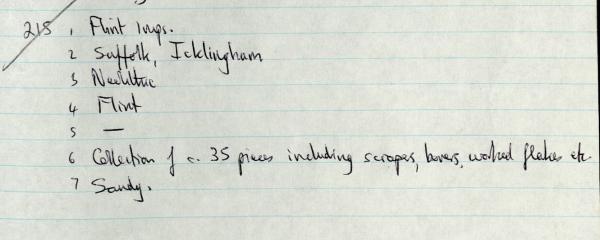 215 1 Flint Imps.
2 Suffolk, Icklingham
3 Neolithic
4 Flint
5 —
6 Collection of c. 35 pieces including scrapes, borers, worked flakes etc
7 Sandy.